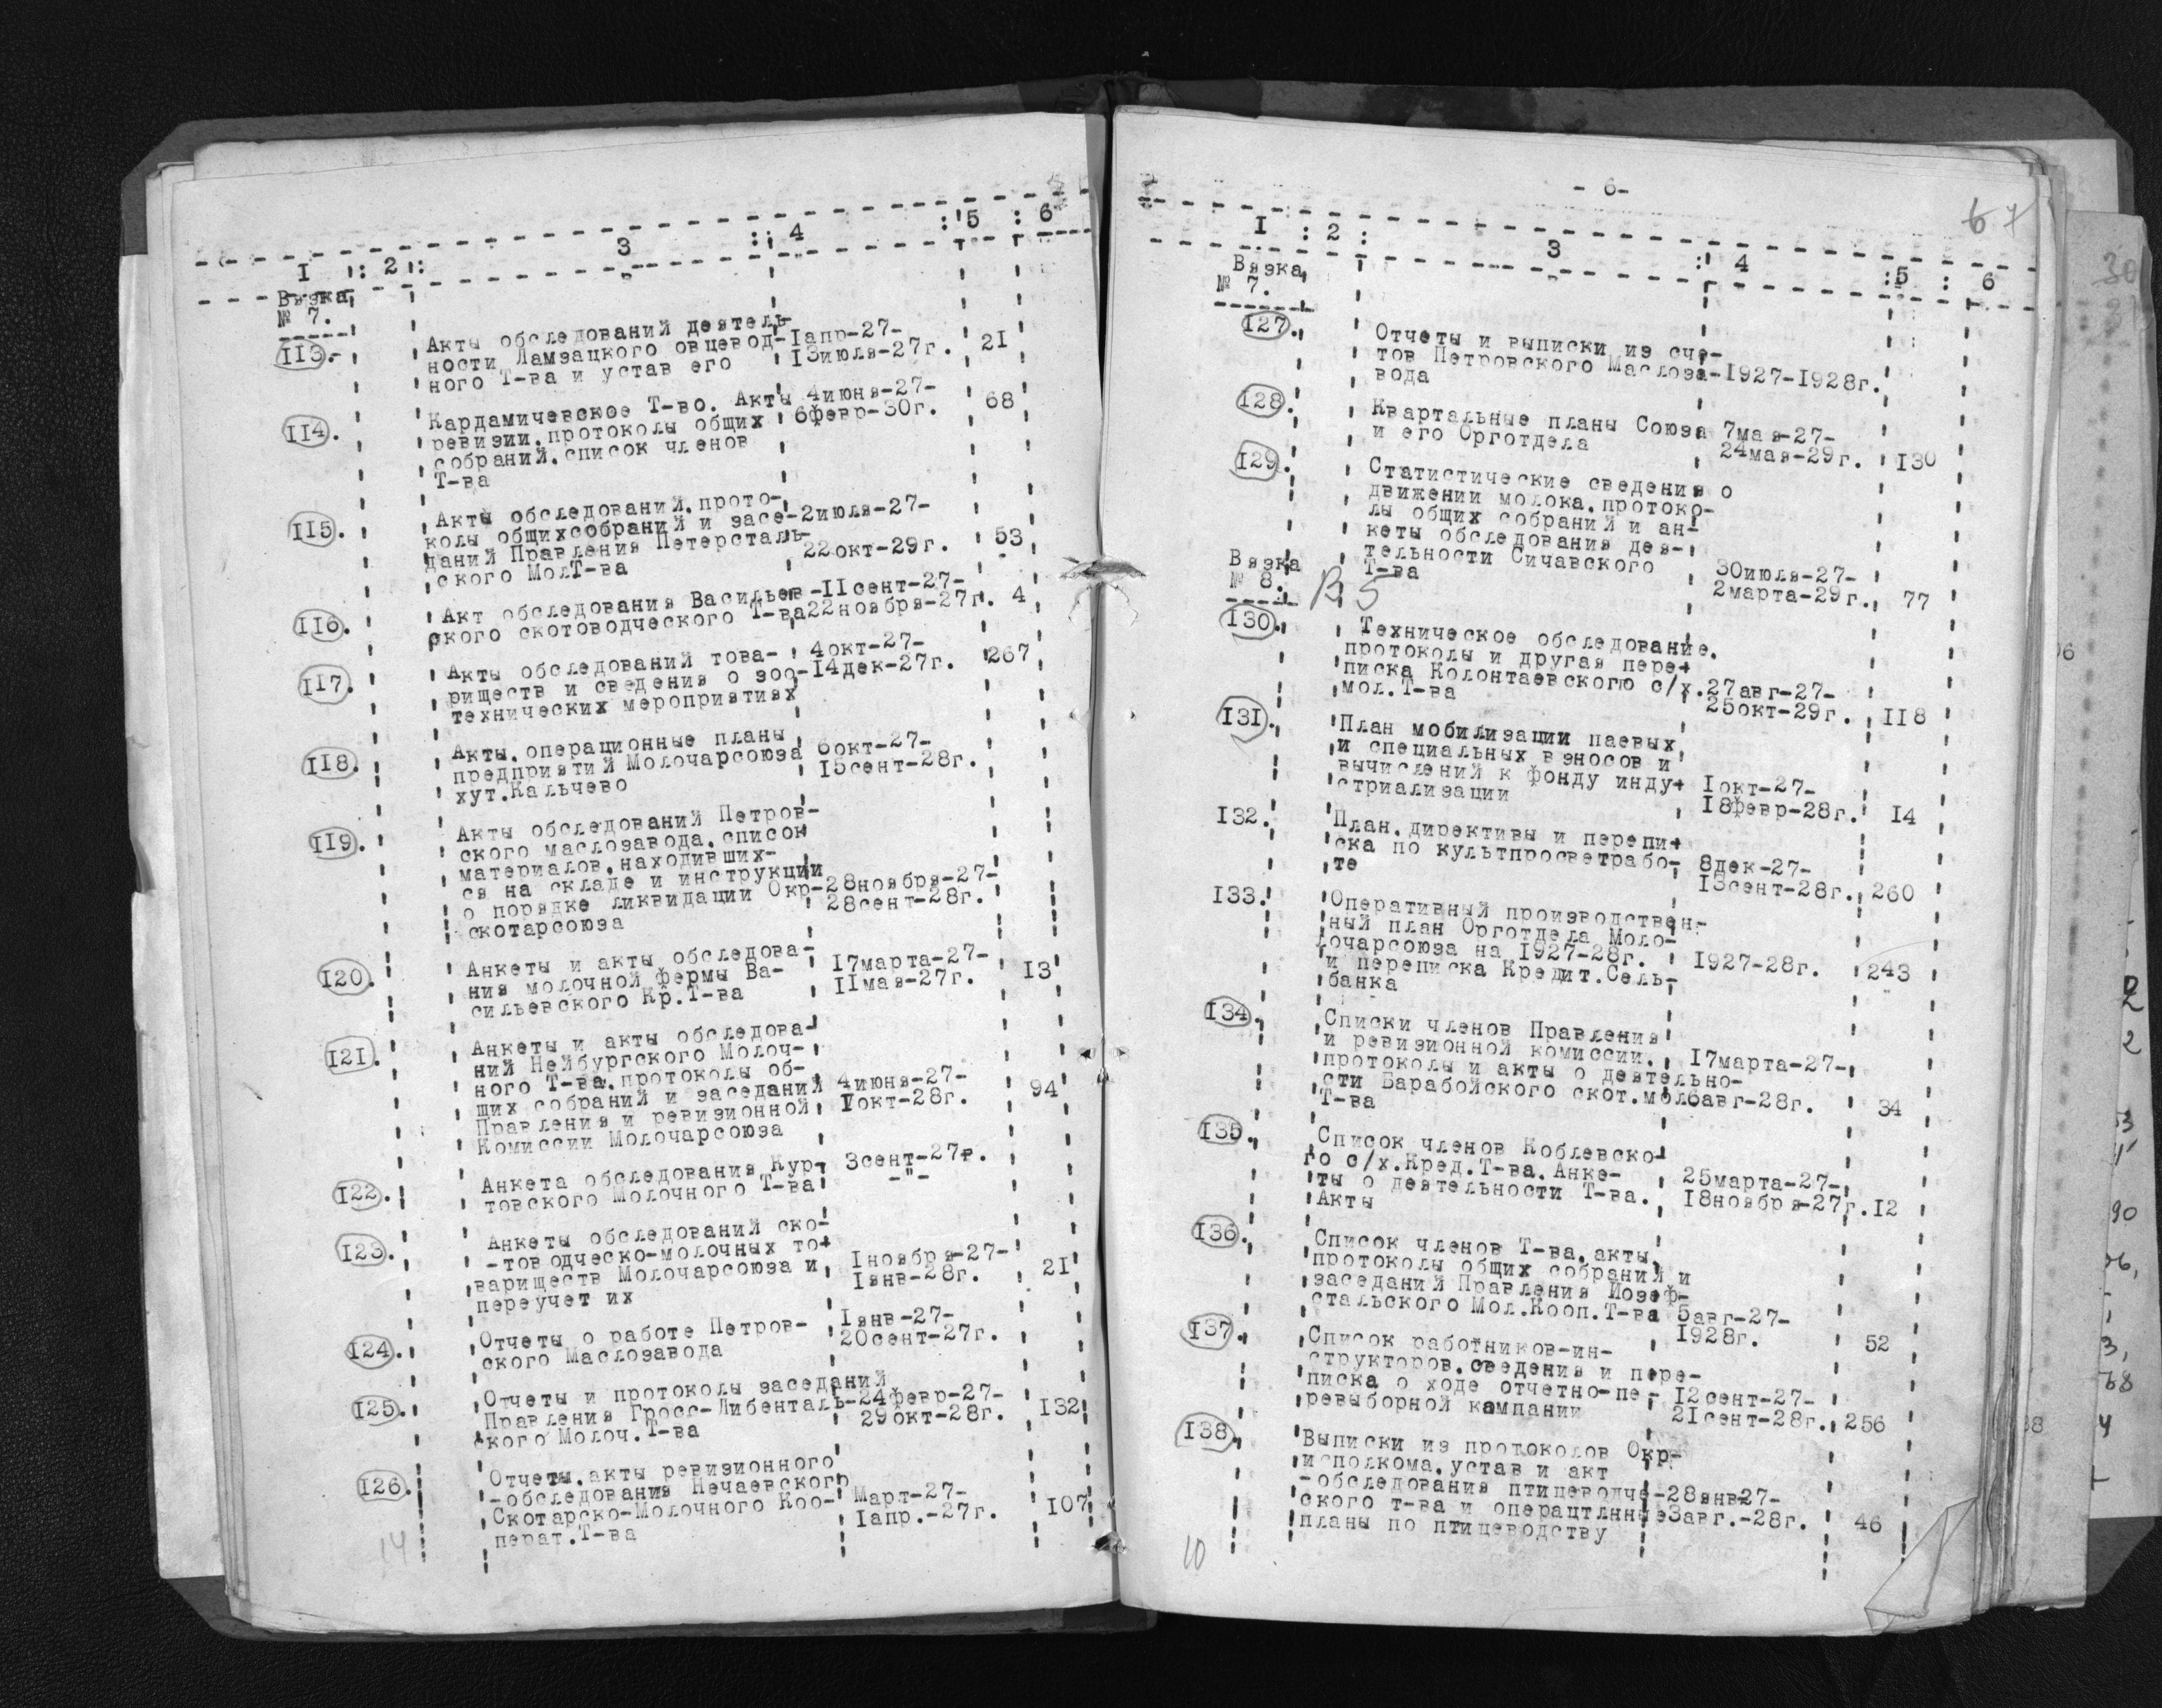 I : 2 : 3 : 4 : 5 : 6
Вязка
№ 7.
113.- Акты обследований деятель-
ности Ламзацкого овцевод- 1апр-27-
ного Т-ва и устав его 13июля-27г. 21
114. Кардамичевское Т-во. Акты 4июня-27-
ревизии.протоколы общих 6февр-30г. 68
собраний.список членов
Т-ва
115. Акты обследований.прото-
колы общихсобраний и засе-2июля-27-
даний Правления Петерсталь-
ского МолТ-ва 22окт-29г. 53
116. Акт обследования Васильев-11сент-27-
ского скотоводческого Т-ва22ноября-27г. 4
117. Акты обследований това- 4окт-27-
риществ и сведения о зоо-14дек-27г. 267
технических мероприятиях
118. Акты.операционные планы
предприятий Молочарсоюза 6окт-27-
хут.Кальчево 15сент-28г.
119. Акты обследований Петров-
ского маслозавода.список
материалов.находивших-
ся на складе и инструкции
о порядке ликвидации Окр-28ноября-27-
скотарсоюза 28сент-28г.
120. Анкеты и акты обследова-
ния молочной фермы Ва- 17марта-27-
сильевского Кр.Т-ва 11мая-27г. 13
121. Анкеты и акты обследова-
ний Нейбургского Молоч-
ного Т-ва.протоколы об-
щих собраний и заседаний 4июня-27-
Правления и ревизионной 1окт-28г. 94
Комиссии Молочарсоюза
122. Анкета обследования Кур- 3сент-27г.
товского Молочного Т-ва -"-
123. Анкеты обследований ско-
-товодческо-молочных то-
вариществ Молочарсоюза и 1ноября-27-
переучет их 1янв-28г. 21
124. Отчеты о работе Петров- 1янв-27-
ского Маслозавода 20сент-27г.
125. Отчеты и протоколы заседаний
Правления Гросс-Либенталь-24февр-27-
ского Молоч.Т-ва 29окт-28г. 132
126. Отчеты.акты ревизионного
-обследования Нечаевского
Скотарско-Молочного Коо- Март-27-
перат.Т-ва 1апр.-27г. 107
14
- 6-
67
I : 2 : 3 : 4 : 5 : 6
Вязка
№ 7.
127. Отчеты и выписки из сче-
тов Петровского Маслоза-1927-1928г.
вода
128. Квартальные планы Союза 7мая-27-
и его Орготдела 24мая-29г. 130
129. Статистические сведения о
движении молока.протоко-
лы общих собраний и ан-
кеты обследования дея-
тельности Сичавского 30июля-27-
Т-ва 2марта-29г. 77
Вязка
№ 8.
130. Техническое обследование.
протоколы и другая пере-
писка Колонтаевского с/х.27авг-27-
мол.Т-ва 25окт-29г. 118
131. План мобилизации паевых
и специальных взносов и
вычислений к фонду инду- 1окт-27-
стриализации 18февр-28г. 14
132. План.директивы и перепи-
ска по культпросветрабо- 8дек-27-
те 13сент-28г. 260
133. Оперативный производствен-
ный план Орготдела Моло-
лочарсоюза на 1927-28г. 1927-28г. 243
и переписка Кредит.Сель-
банка
134. Списки членов Правления
и ревизионной комиссии. 17марта-27-
протоколы и акты о деятельно-
сти Барабойского скот.мол6авг-28г. 34
Т-ва
135. Список членов Коблевско-
го с/х.Кред.Т-ва.Анке- 25марта-27-
ты о деятельности Т-ва. 18ноября-27г.12
Акты
136. Список членов Т-ва.акты.
протоколы общих собраний и
заседаний Правления Йозеф-
стальского Мол.Кооп.Т-ва 5авг-27-
1928г. 52
137. Список работников-ин-
структоров.сведения и пере-
писка о ходе отчетно-пе- 12сент-27-
ревыборной кампании 21сент-28г. 256
138. Выписки из протоколов Окр-
исполкома.устав и акт
-обследования птицеводче-28янв27-
ского т-ва и операцтлнные3авг.-28г. 46
планы по птицеводству
10